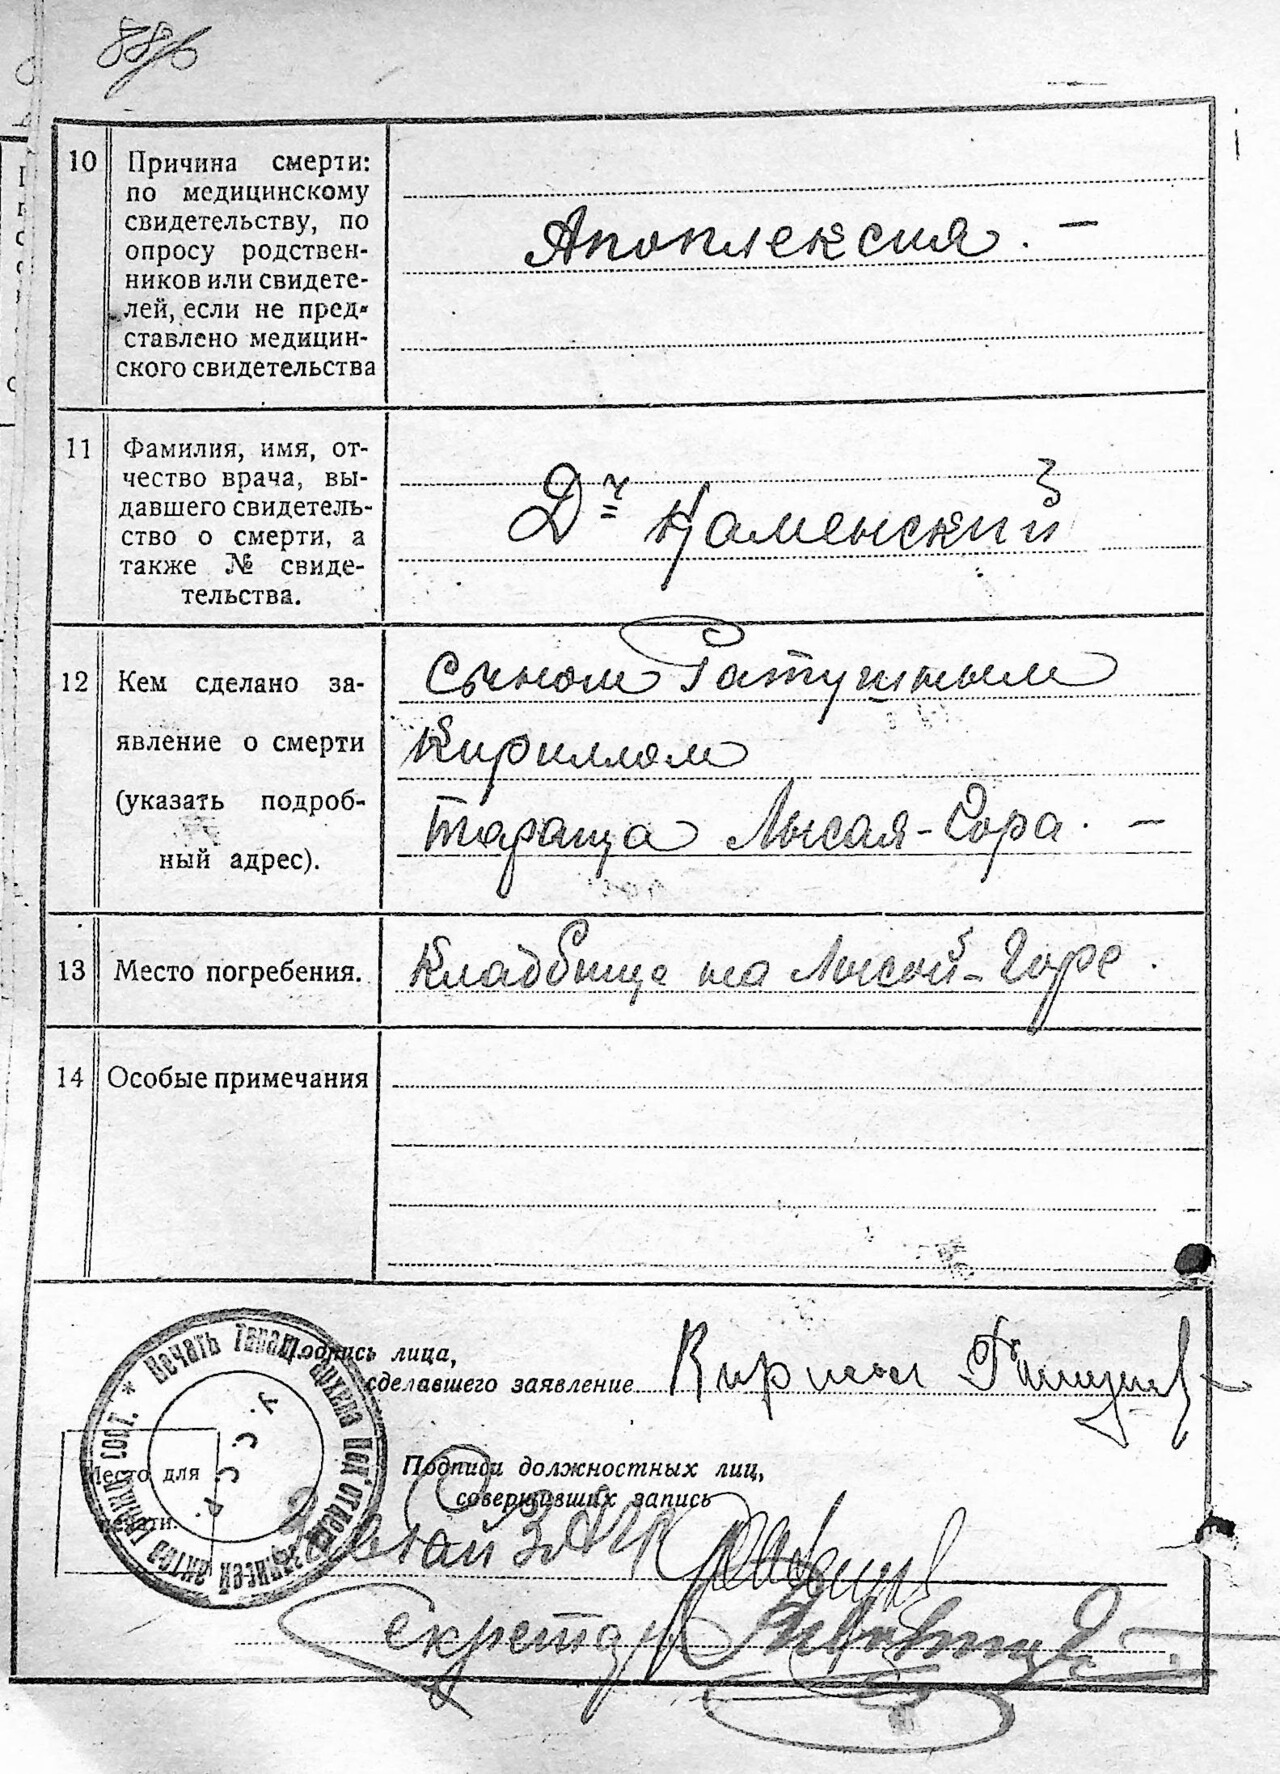 10
Причина смерти:
по медицинскому
свидетельству, по
опросу родствен-
ников или свидете-
лей, если не пред-
ставлено медицин-
ского свидетельства
Апоплексия. —
11
Фамилия, имя, от-
чество врача, вы-
давшего свидетель-
ство о смерти, а
также № свиде-
тельства.
Д-р Каменский
12
Кем сделано за-
явление о смерти
(указать подроб-
ный адрес).
Сыном Ратушным
Кириллом
Тараща Лысая-Гора. —
13
Место погребения.
Кладбище на Лысой-Горе.
14
Особые примечания
Подпись лица,
сделавшего заявление
Кирилл
Место для
печати.
Подписи должностных лиц,
совершивших запись
ЗАГС
Секретарь
* Печать Таращ.
С.С.У.